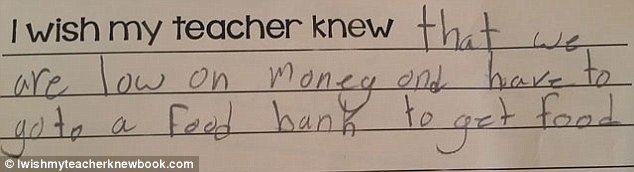 I wish my teacher knew that we
are low on money and have to
go to a food bank to get food
© Iwishmyteacherknewbook.com